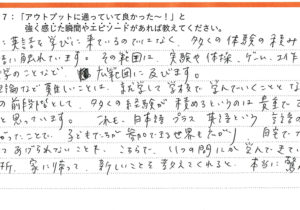 7：「アウトプットに通っていて良かった〜！」と
強く感じた瞬間やエピソードがあれば教えてください。
に英語を学びに来ているのではなく、多くの体験の積み
に触れています。その範囲は、実験や体操、ゲーム、工作
学のことなど 広範囲に及びます。
論など難しいことは、就学して学校で学んでいくこととな
の前段階として、多くの経験が積めるというのは 最重で
と思っています。これも、日本語プラス英語という
かったことで、子どもたちが参加できる世界も広がり 自宅で
つあげられないことを、こちらで、いつの間にか学んできて
所、家に帰って、新しいことを教えてくれると、本当に驚